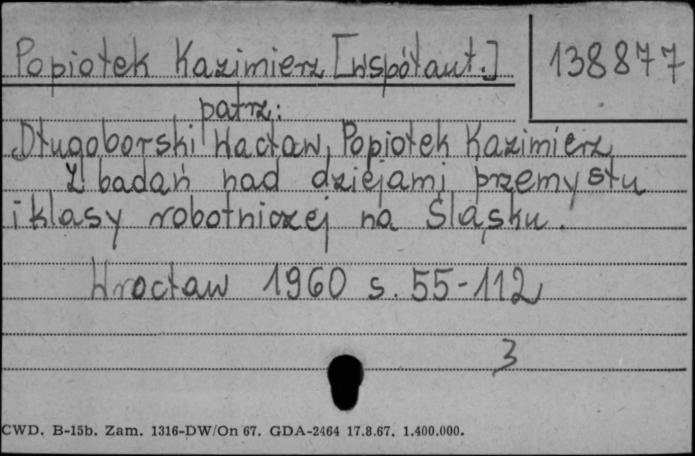 Popiołek Kazimierz [współaut.]
138877
patrz:
Długoborski Wacław, Popiołek Kazimierz
Z badań nad dziejami przemysłu
i klasy robotniczej na Śląsku.
Wrocław 1960 s. 55-112
3
CWD. B-15b. Zam. 1316-DW/On 67. GDA-2464 17.8.67. 1.400.000.